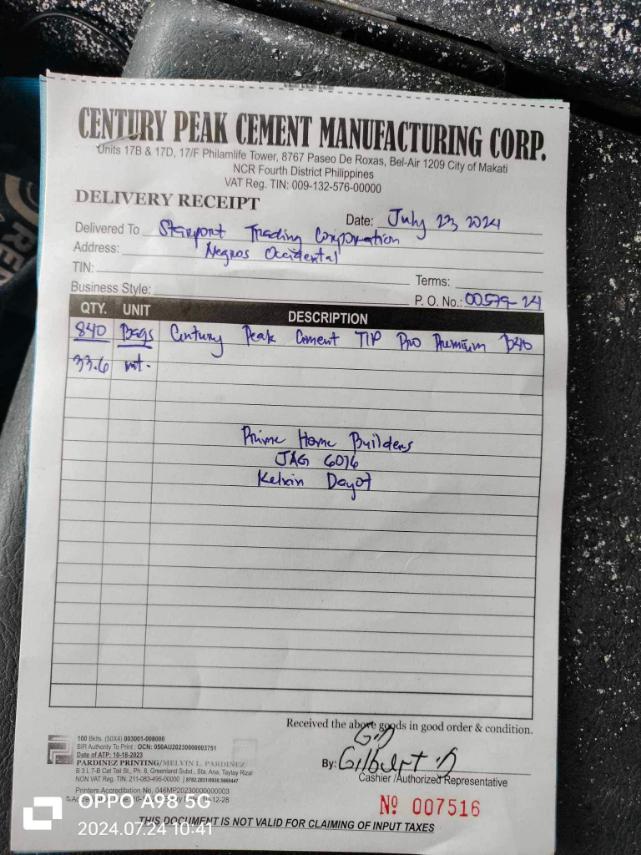 CENTURY PEAK CEMENT MANUFACTURING CORP.
Units 17B & 17D, 17/F Philamlife Tower, 8767 Paseo De Roxas, Bel-Air 1209 City of Makati
NCR Fourth District Philippines
VAT Reg. TIN: 009-132-576-00000
DELIVERY RECEIPT
Date: July 23, 2024
Delivered To Starport Trading Corporation
Address: Negros Occidental
TIN:
Business Style: Terms:
P. O. No.: 00579-24
QTY. UNIT DESCRIPTION
840 Bags Century Peak Cement TIP Pro Premium P40
33.6 mt.
Prime Home Builders
JAG 6076
Kelvin Dayot
Received the above goods in good order & condition.
By: Gilbert
Cashier /Authorized Representative
100 Bkts. (50X4) 003001-008000
BIR Authority To Print : OCN: 050AU20230000003751
Date of ATP: 10-18-2023
PARDINEZ PRINTING/MELVIN L. PARDINEZ
B 3 L 7-B Cat Tail St., Ph. 8, Greenland Subd., Sta. Ana, Taytay Rizal
NON VAT Reg. TIN: 211-083-496-00000
Printers Accreditation No. 046MP20230000000003
Nº 007516
THIS DOCUMENT IS NOT VALID FOR CLAIMING OF INPUT TAXES
OPPO A98 5G
2024.07.24 10:41